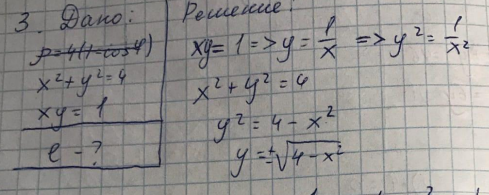 3. Дано:
ρ=4(1-cosφ)
x²+y²=4
xy=1
l-?
Решение:
xy=1=>y=1/x =>y²=1/x²
x²+y²=4
y²=4-x²
y=±√4-x²